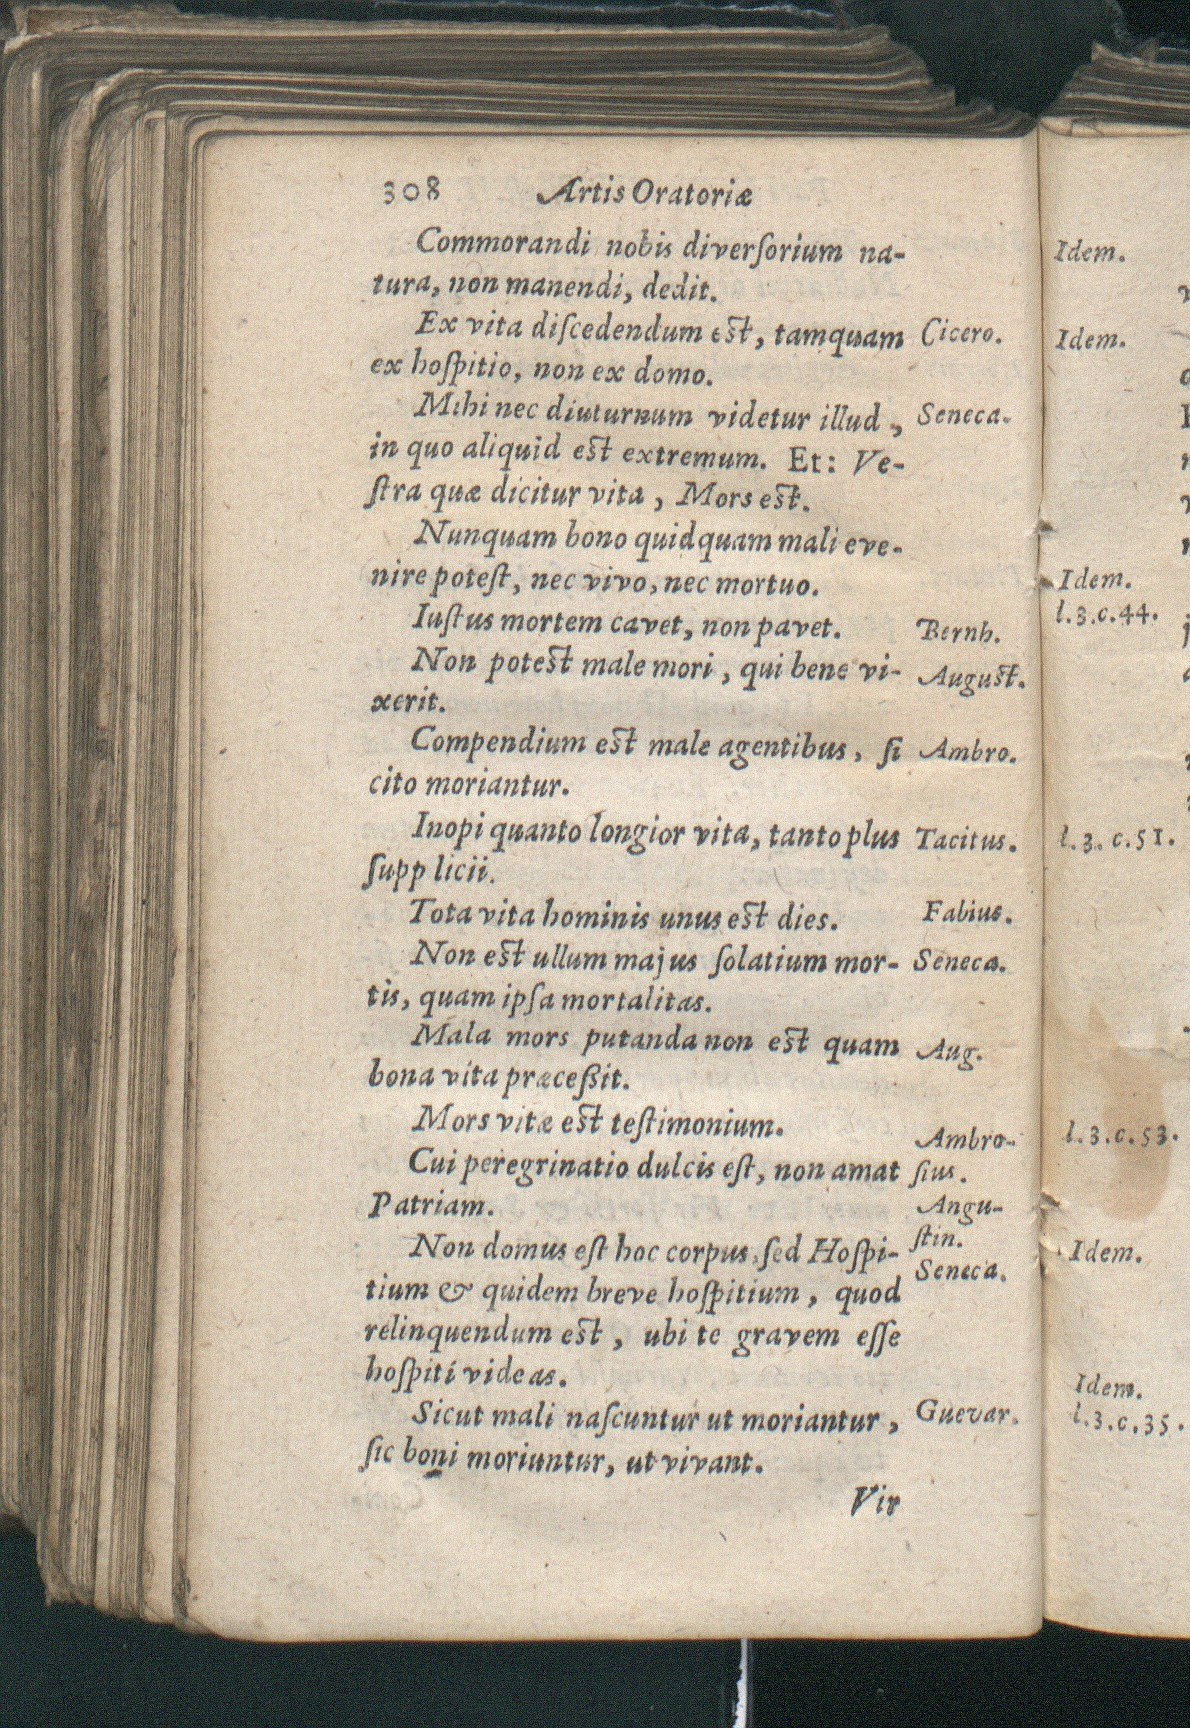 308 Artis Oratoriæ
Commorandi nobis diverſorium na-
tura, non manendi, dedit.
Ex vita diſcedendum eſt, tamquam
Cicero.
ex hoſpitio, non ex domo.
Mihi nec diuturnum videtur illud,
Seneca.
in quo aliquid eſt extremum. Et: Ve-
ſtra quæ dicitur vita, Mors eſt.
Nunquam bono quidquam mali eve-
nire poteſt, nec vivo, nec mortuo.
Iuſtus mortem cavet, non pavet.
Bernh.
Non poteſt male mori, qui bene vi-
Auguſt.
xerit.
Compendium eſt male agentibus, ſi
Ambro.
cito moriantur.
Inopi quanto longior vita, tanto plus
Tacitus.
ſupp licii.
Tota vita hominis unus eſt dies.
Fabius.
Non eſt ullum majus ſolatium mor-
Seneca.
tis, quam ipſa mortalitas.
Mala mors putanda non eſt quam
Aug.
bona vita præceßit.
Mors vitæ eſt teſtimonium.
Ambro-
ſius.
Cui peregrinatio dulcis eſt, non amat
Patriam.
Angu-
ſtin.
Non domus eſt hoc corpus, ſed Hoſpi-
Seneca.
tium & quidem breve hoſpitium, quod
relinquendum eſt, ubi te gravem eſſe
hoſpiti videas.
Sicut mali naſcuntur ut moriantur,
Guevar.
ſic boni moriuntur, ut vivant.
Vir
Idem.
Idem.
Idem.
l.3.c.44.
l.3.c.51.
l.3.c.53.
Idem.
Idem.
l.3.c.35.